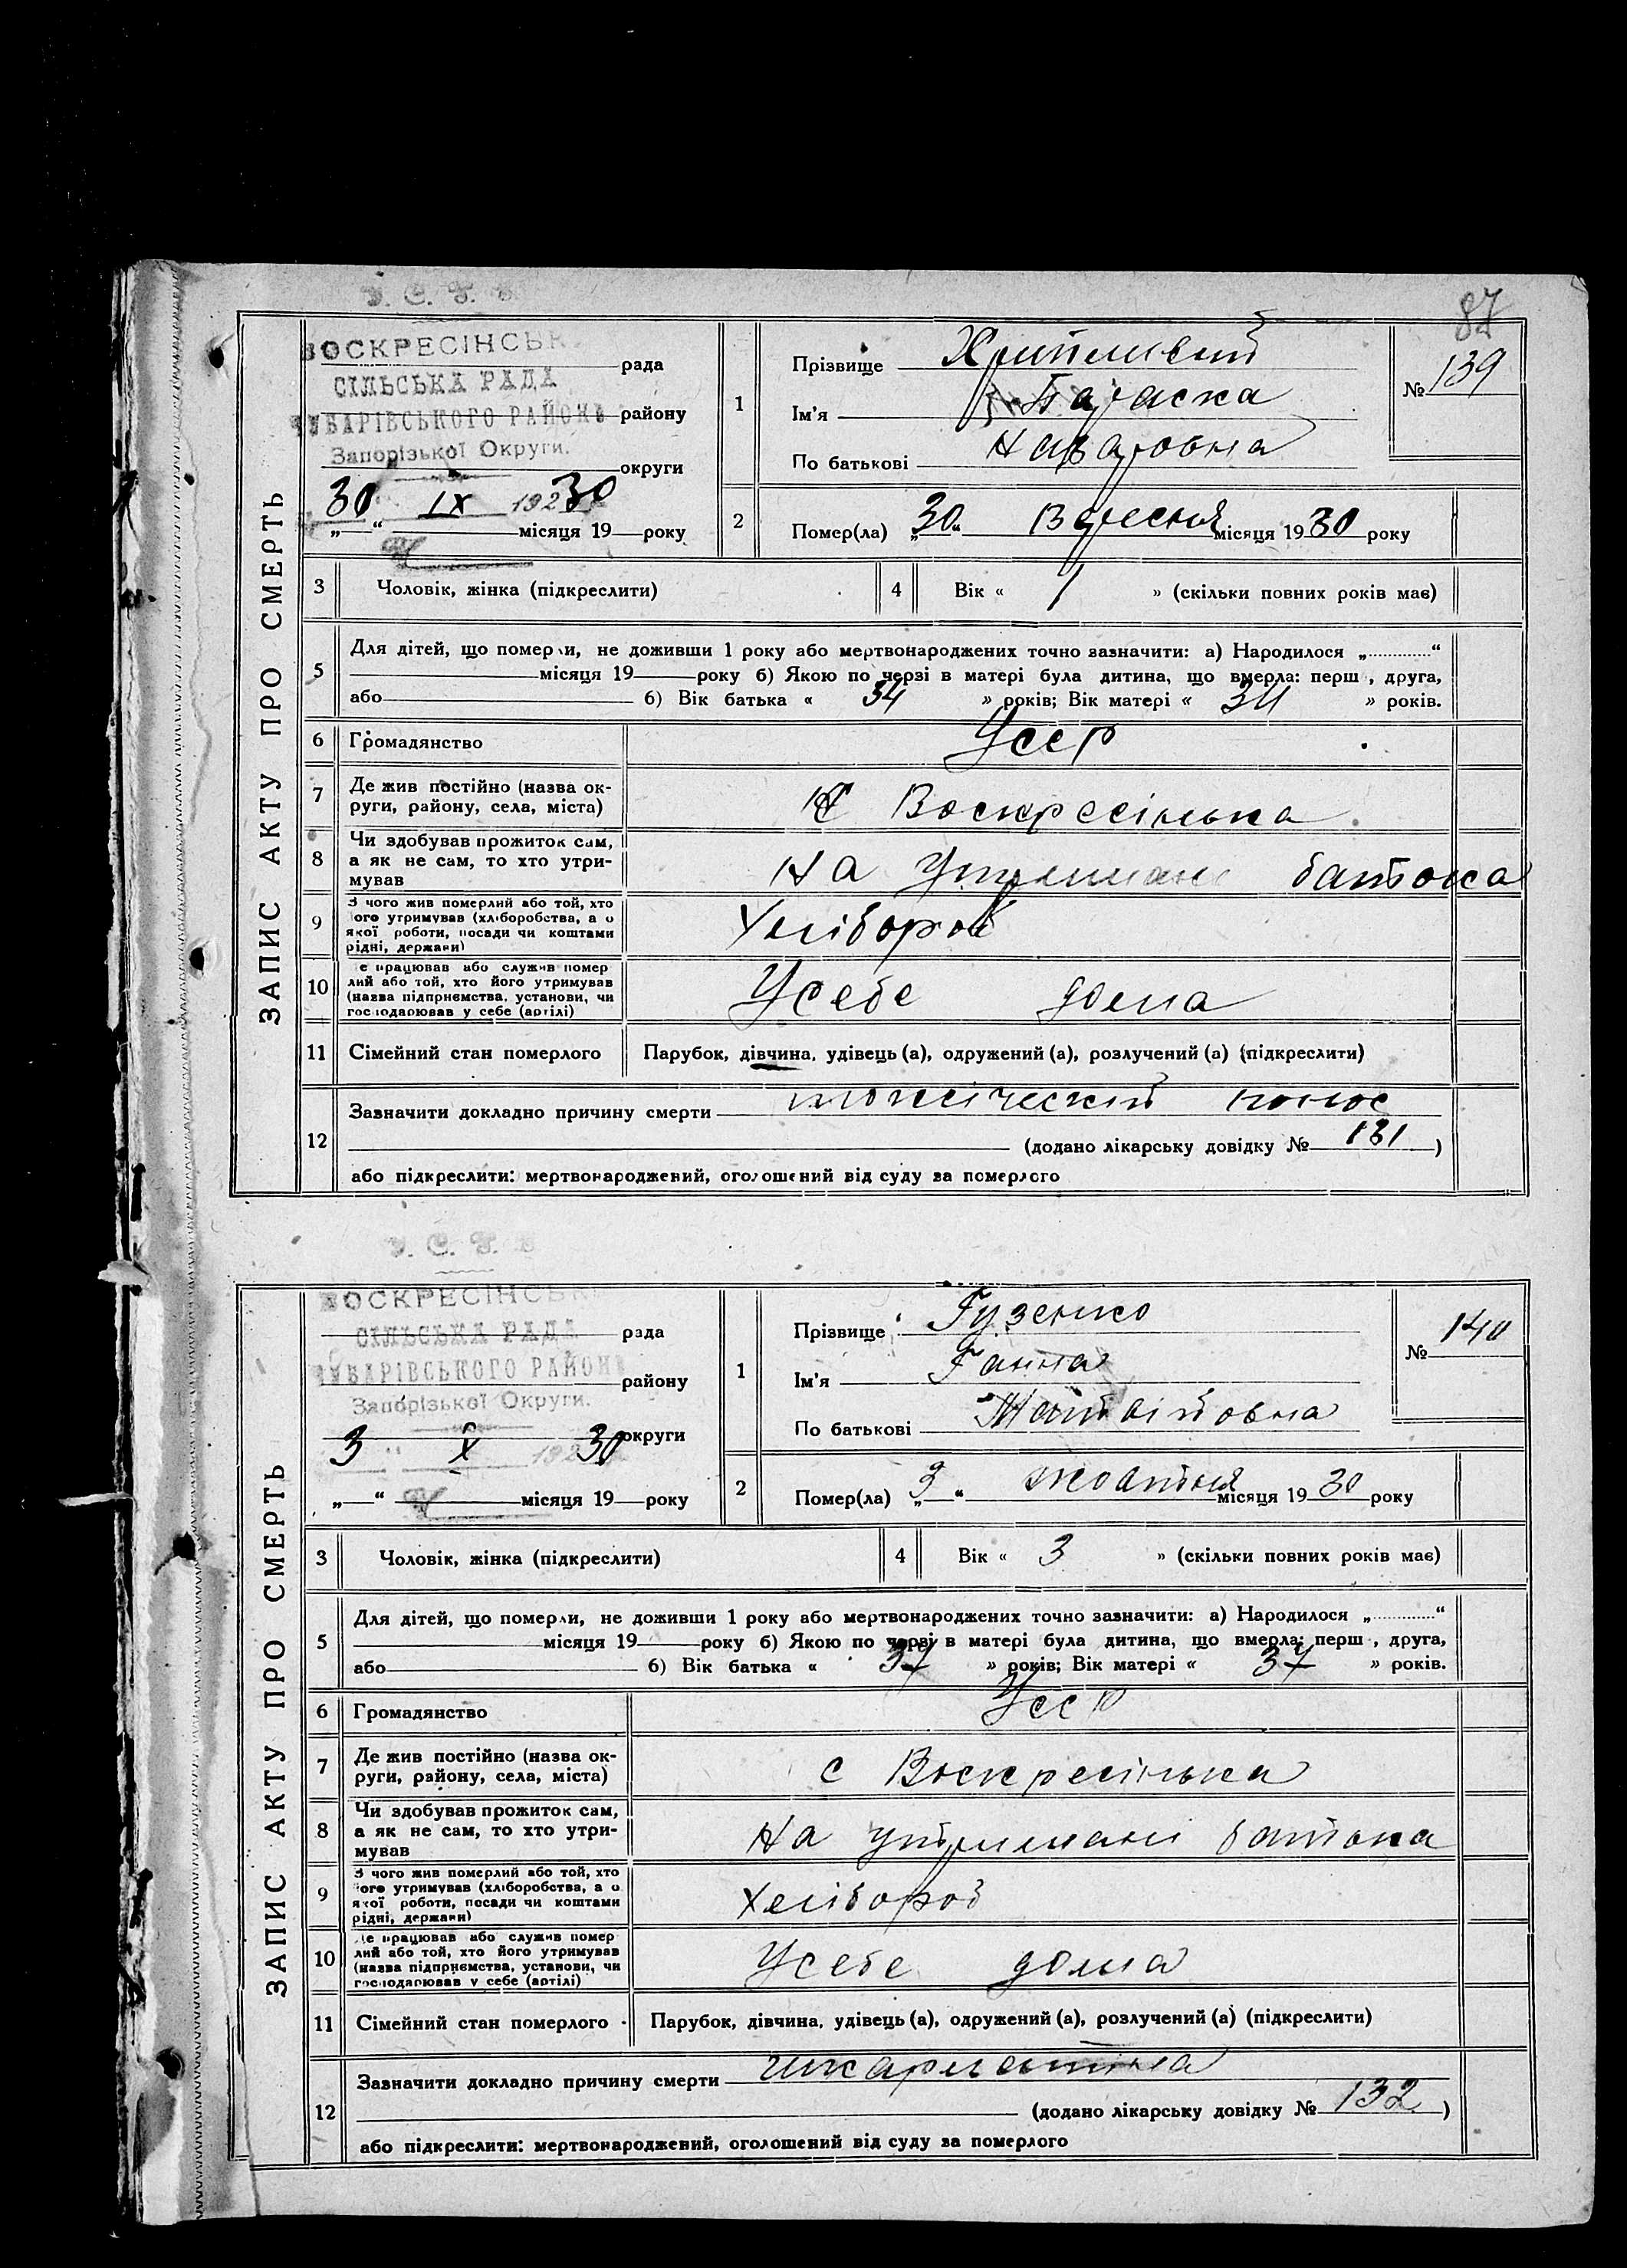 87
У. С. Р. Р.
ВОСКРЕСІНСЬК
СІЛЬСЬКА РАДА
ЧУБАРІВСЬКОГО РАЙОНУ
Запорізької Округи.
рада
району
округи
30 IX 192 30
„ “ місяця 19 року
ЗАПИС АКТУ ПРО СМЕРТЬ
1
Прізвище Хрипливий
Ім'я Параска
По батькові Назаровна
№ 139
2
Помер(ла) „30“ Вересня місяця 1930 року
3 Чоловік, жінка (підкреслити)
4 Вік « 1 » (скільки повних років має)
5
Для дітей, що померли, не доживши 1 року або мертвонароджених точно зазначити: а) Народилося „.............“
місяця 19 року б) Якою по черзі в матері була дитина, що вмерла: перш , друга,
або б) Вік батька « 34 » років; Вік матері « 34 » років.
6 Громадянство Усср
7 Де жив постійно (назва ок-
руги, району, села, міста) С Воскресінька
8 Чи здобував прожиток сам,
а як не сам, то хто утри-
мував На утримані батька
9 З чого жив померлий або той, хто
його утримував (хліборобства, а о
якої роботи, посади чи коштами
рідні, держави) Хлібороб
10 Де працював або служив помер
лий або той, хто його утримував
(назва підприємства, установи, чи
господарював у себе (артілі) У себе дома
11 Сімейний стан померлого Парубок, дівчина, удівець (а), одружений (а), розлучений (а) (підкреслити)
12
Зазначити докладно причину смерти токсіческій понос
(додано лікарську довідку № 131 )
або підкреслити: мертвонароджений, оголошений від суду за померлого
У. С. Р. Р.
ВОСКРЕСІНСЬК
СІЛЬСЬКА РАДА
ЧУБАРІВСЬКОГО РАЙОНУ
Запорізької Округи.
рада
району
округи
3 X 192 30
„ “ місяця 19 року
ЗАПИС АКТУ ПРО СМЕРТЬ
1
Прізвище Гузенко
Ім'я Ганна
По батькові Матвійовна
№ 140
2
Помер(ла) „3“ жовтня місяця 1930 року
3 Чоловік, жінка (підкреслити)
4 Вік « 3 » (скільки повних років має)
5
Для дітей, що померли, не доживши 1 року або мертвонароджених точно зазначити: а) Народилося „.............“
місяця 19 року б) Якою по черзі в матері була дитина, що вмерла: перш , друга,
або б) Вік батька « 37 » років; Вік матері « 37 » років.
6 Громадянство Усср
7 Де жив постійно (назва ок-
руги, району, села, міста) С Воскресінька
8 Чи здобував прожиток сам,
а як не сам, то хто утри-
мував На утримані батька
9 З чого жив померлий або той, хто
його утримував (хліборобства, а о
якої роботи, посади чи коштами
рідні, держави) Хлібороб
10 Де працював або служив помер
лий або той, хто його утримував
(назва підприємства, установи, чи
господарював у себе (артілі) У себе дома
11 Сімейний стан померлого Парубок, дівчина, удівець (а), одружений (а), розлучений (а) (підкреслити)
12
Зазначити докладно причину смерти шкарлатина
(додано лікарську довідку № 132 )
або підкреслити: мертвонароджений, оголошений від суду за померлого